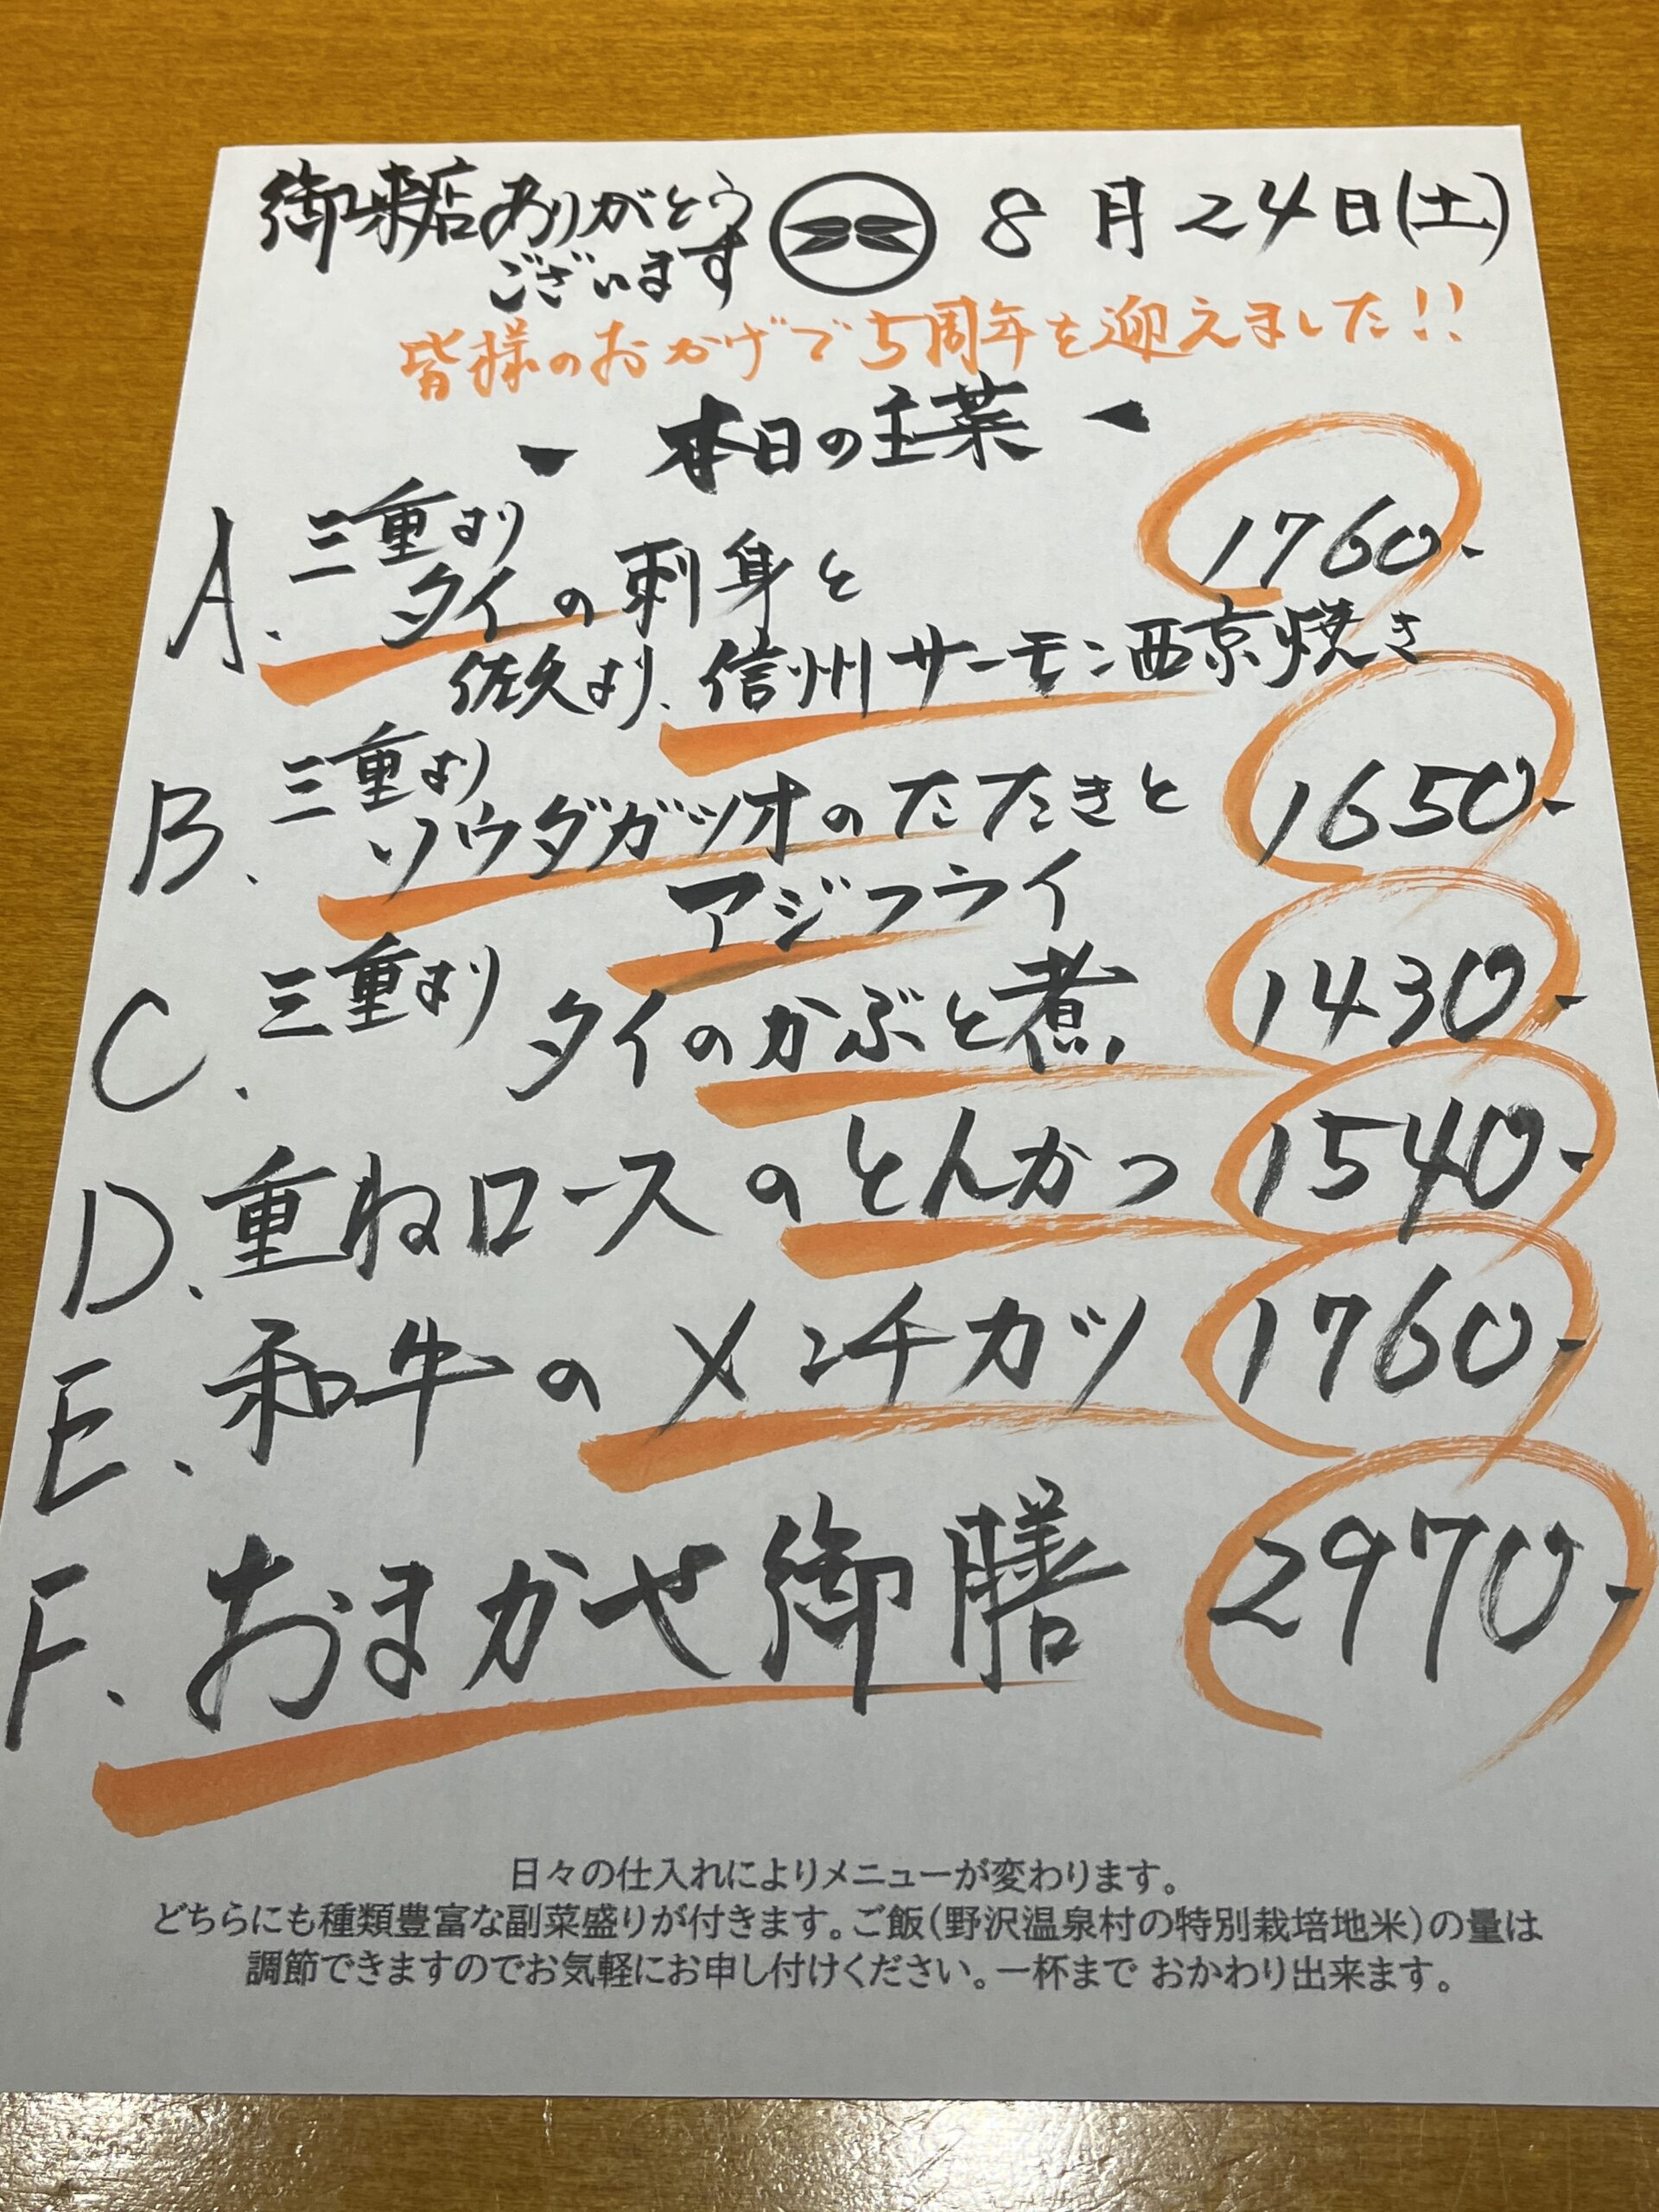 御来店ありがとう
ございます
8月24日(土)
皆様のおかげで5周年を迎えました!!
- 本日の主菜 -
A. 三重より
タイの刺身と
1760-
佐久より、信州サーモン西京焼き
B. 三重より
ソウダガツオのたたきと
1650-
アジフライ
C. 三重より タイのかぶと煮 1430-
D. 重ねロースのとんかつ 1540-
E. 和牛のメンチカツ 1760-
F. おまかせ御膳 2970-
日々の仕入れによりメニューが変わります。
どちらにも種類豊富な副菜盛りが付きます。ご飯(野沢温泉村の特別栽培地米)の量は
調節できますのでお気軽にお申し付けください。一杯まで おかわり出来ます。